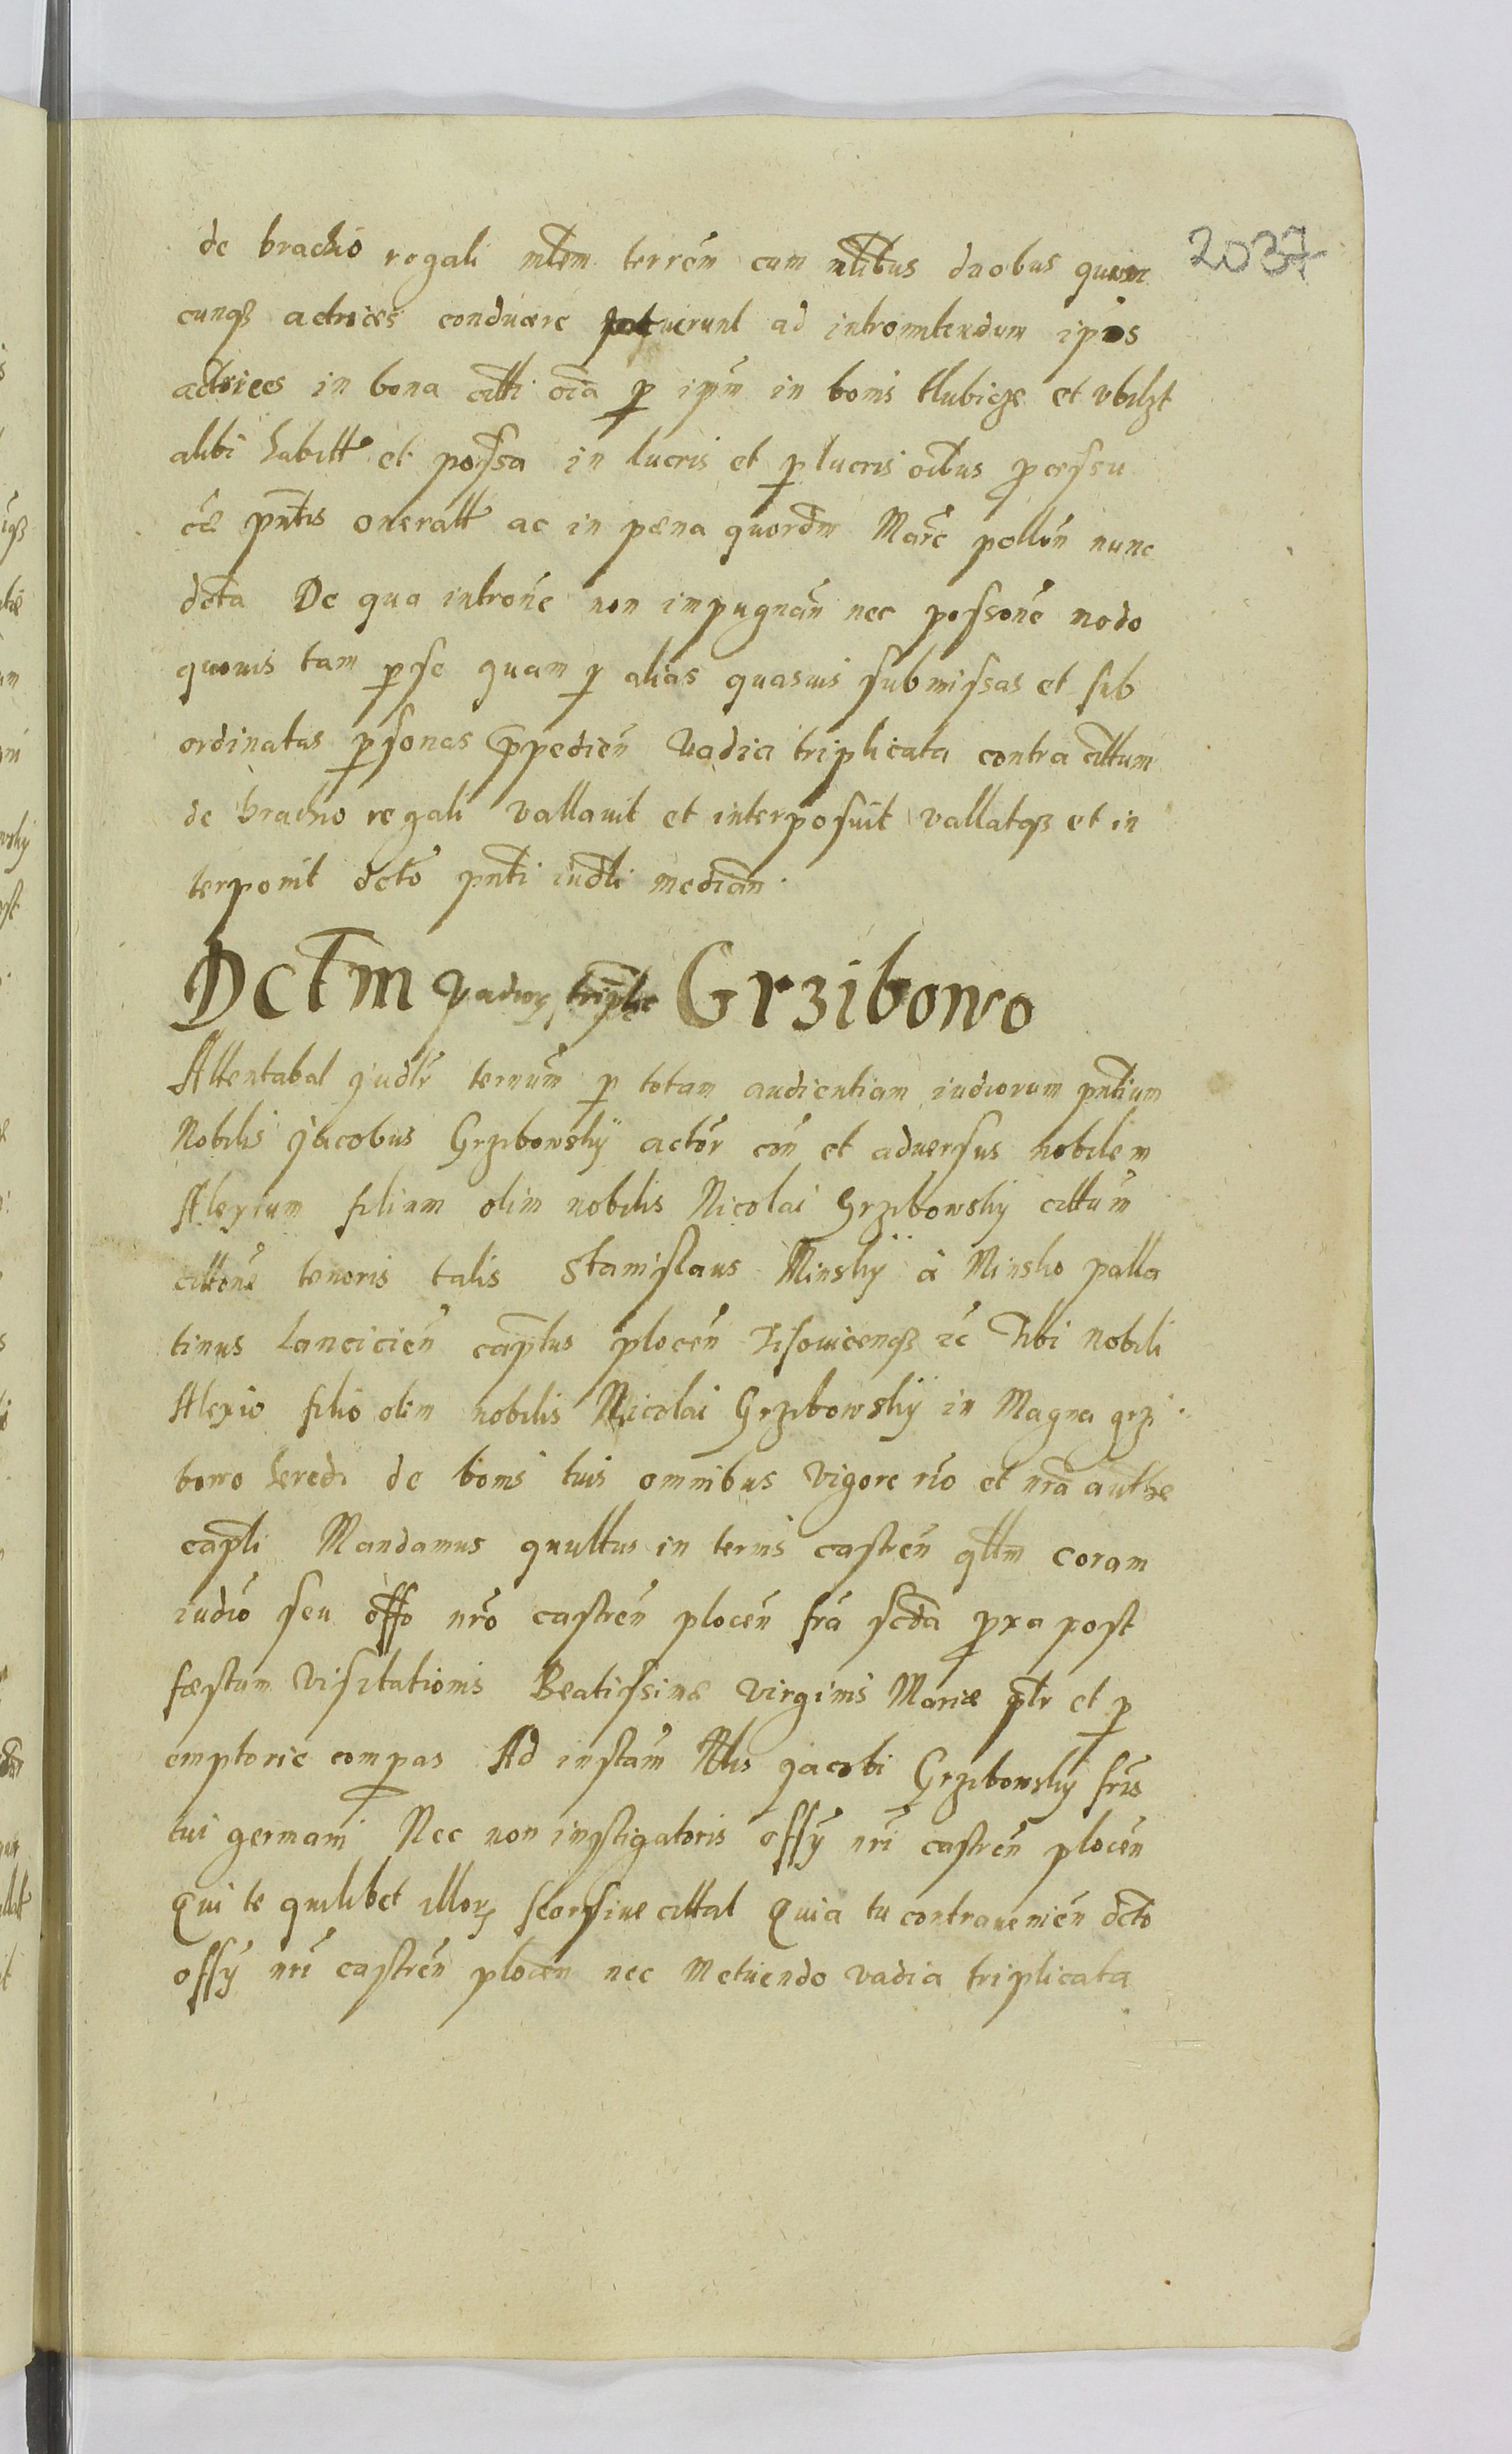 2037
de brachio regali mlem terren cum nlibus duobus quem
cunq3 actrices conducere potuerunt ad intromittendum ipas
actrices in bona citti oia p ipm in bonis Chubicze et vbilzt
alibi habitt et possa in lucris et p lucris oibus processu
cae pntis oneratt ac in paena quordm Marc pollon nunc
dcta De qua introne non impugnan nec possone modo
quovis tam p se quam p alias quasvis submissas et sub
ordinatas psonas Appedien vadia triplicata contra cittum
de brachio regali vallavit et interposuit vallatq3 et in
terponit dcto pnti iudli median.
Dctm vadior triplic Grzibowo
Attentabat Judlr ternum p totam audientiam iudiorum pntium
Nobilis Jacobus Grzibowskÿ actor con et adversus nobilem
Alexium filium olim nobilis Nicolai Grzibowskÿ cittum
cittone tenoris talis Stanislaus Minskÿ à Minsko palla
tinus Lancicien captus plocen Lisovicenq3 ec Tibi nobili
Alexio filio olim nobilis Nicolai Grzibowskÿ in Magna grzi
bowo heredi de bonis tuis omnibus vigore rio et nra authe
capli Mandamus quultus in ternis castren qllm coram
iudio seu offo nro castren plocen fra scda pxa post
faestum Visitationis Beatissimae Virginis Mariae ptr et p
emptorie compas Ad instam Nlis Jacobi Grzibowskÿ fris
tui germani Nec non instigatoris offÿ nri castren plocen
Qui te quilibet illor seorsive cittat Quia tu contravenien dcto
offÿ nri castren plocen nec Metuendo vadia triplicata